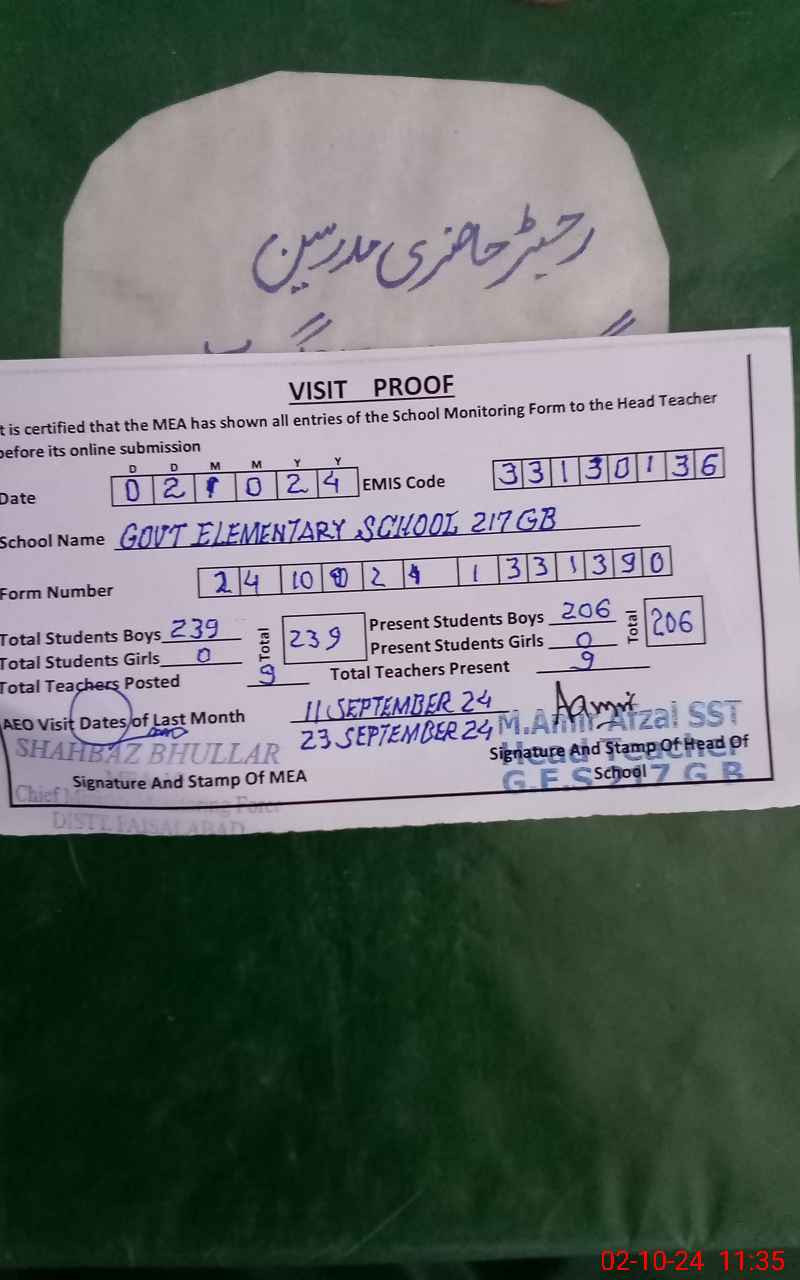 رجسٹر حاضری مدرسین
VISIT PROOF
t is certified that the MEA has shown all entries of the School Monitoring Form to the Head Teacher
before its online submission
D D M M Y Y
Date 0 2 1 0 2 4 EMIS Code 3 3 1 3 0 1 3 6
School Name GOVT ELEMENTARY SCHOOL 217 GB
Form Number 2 4 10 0 2 4 1 3 3 1 3 9 0
Total Students Boys 239 Total 239 Present Students Boys 206 Total 206
Total Students Girls 0 Present Students Girls 0
Total Teachers Posted 9 Total Teachers Present 9
AEO Visit Dates of Last Month 11 SEPTEMBER 24
23 SEPTEMBER 24
SHAHBAZ BHULLAR
M.Amir Afzal SST
Head Teacher
G.E.S 217 G B
Signature And Stamp Of MEA
Signature And Stamp Of Head Of
School
Chief Monitoring Force
DISTT. FAISALABAD
02-10-24 11:35